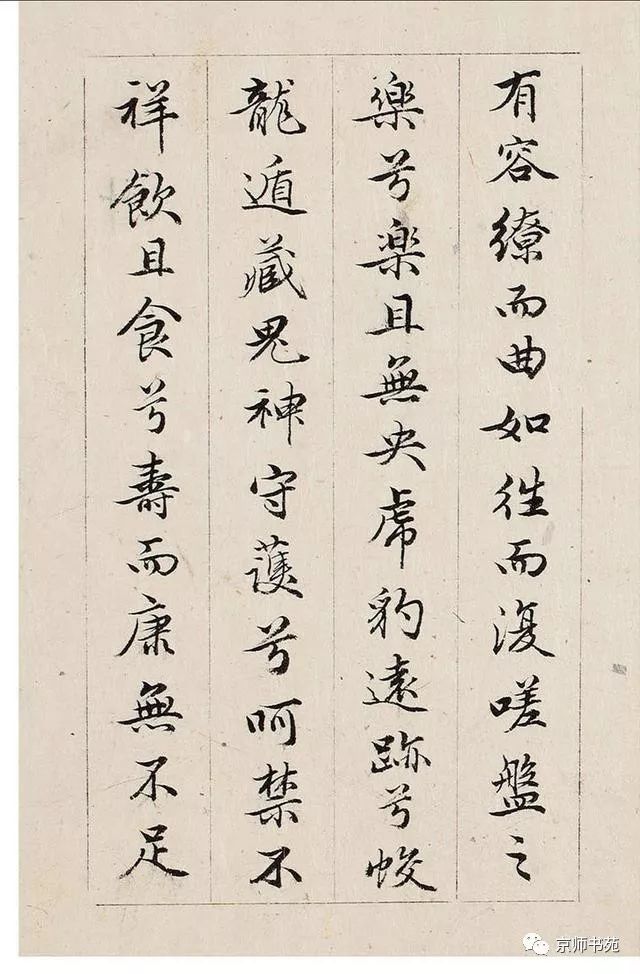 有容繚而曲如往而復嗟盤之
樂兮樂且無央虎豹遠跡兮蛟
龍遁藏鬼神守護兮呵禁不
祥飲且食兮壽而康無不足
京师书苑